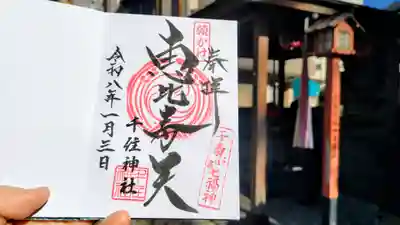 奉拝
願かけ
恵比寿天
千寿七福神
千住神社
令和八年一月三日